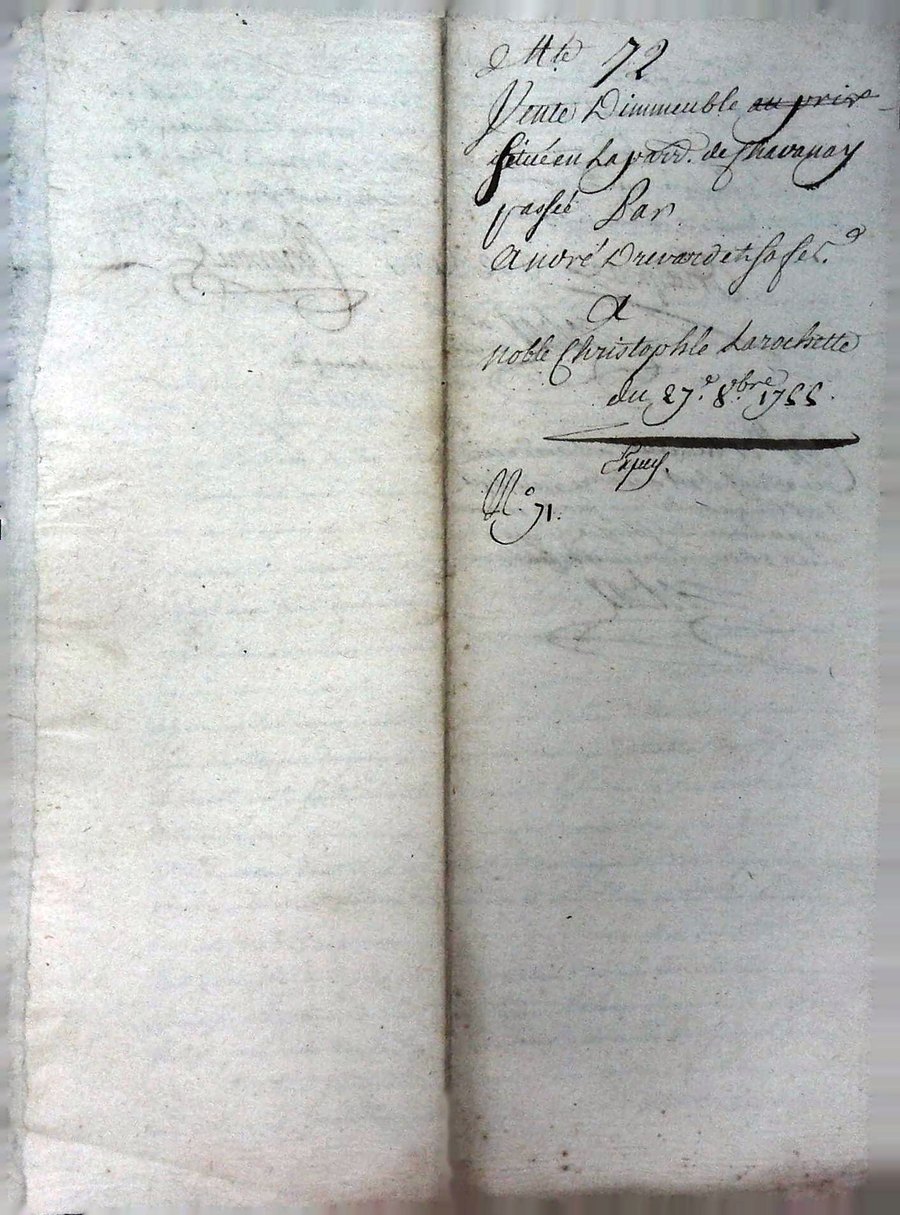 72
Vente Dimmeuble au prix
située en La parr. de Chavanay
passée Par
André Drevard et sa fe.
A
Noble Christophle Larochette
du 27.e 8.bre 1755.
Expéd.
N.o 71.